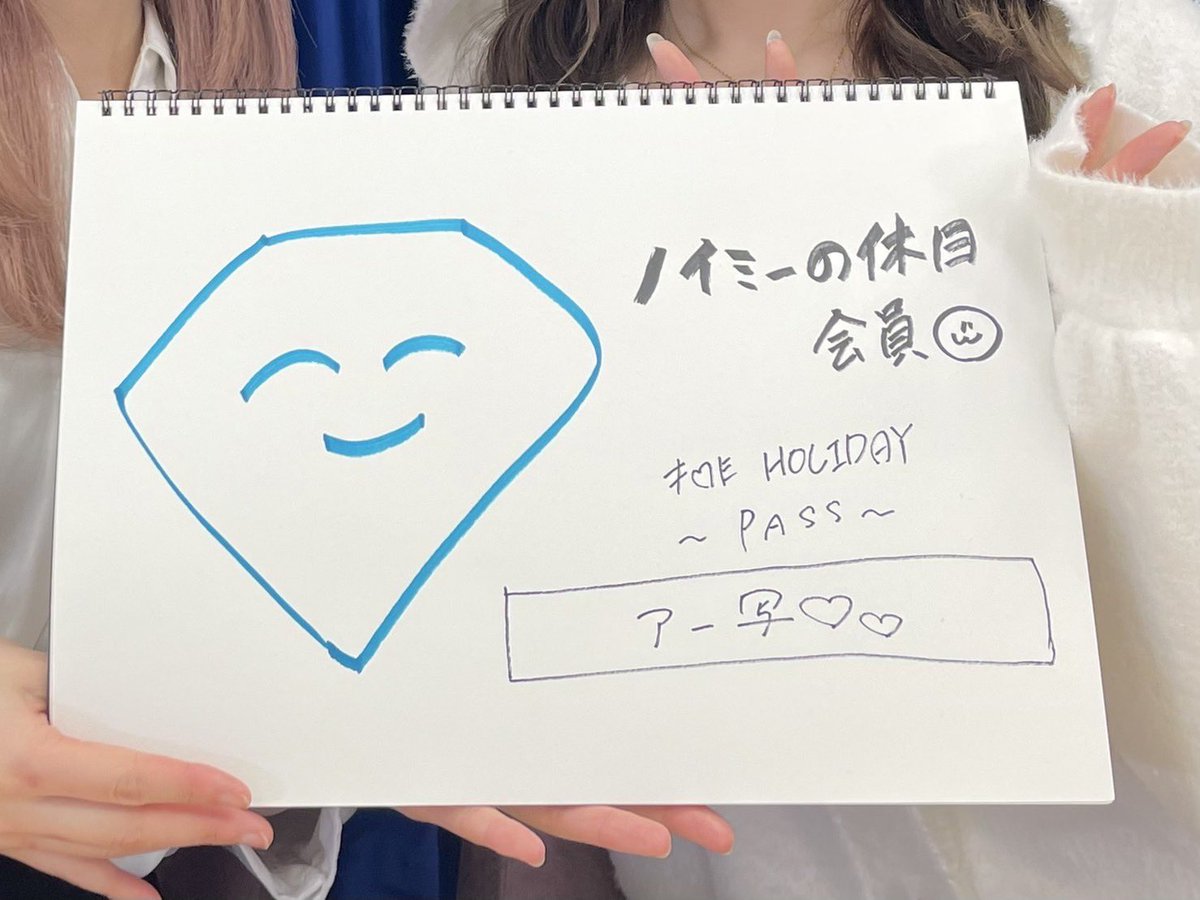 ノイミーの休日
会員
≠ME HOLIDAY
~ PASS ~
アー写♡♡